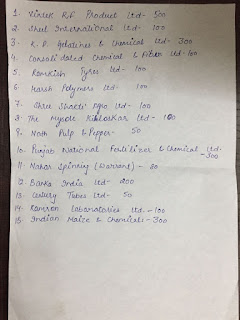 1. Xintek R/F Product Ltd- 500
2. Sheel International Ltd- 100
3. K. P. Gelatines & Chemical Ltd- 300
4. Consoli dated Chemical & Ltd- 100
5. Ramkish Tyres Ltd- 100
6. Harsh Polymers Ltd- 100
7. Shree Shakti Agro Ltd- 100
8. The Mysore Kirloskar Ltd- 100
9. Nath Pulp & Pepper- 50
10. Punjab National Fertilizer & Chemical Ltd
-300
11. Mahar Spinning (Warrant)- 50
12. India Ltd- 200
13. Century Tubes Ltd- 50
14. Laboratories Ltd.-100
15. Indian Maize & Chemicals-300